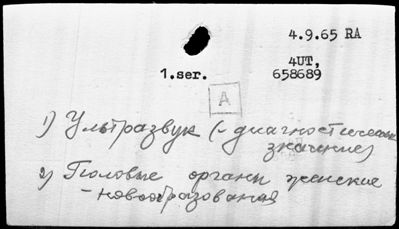 4.9.65 RA
4UT,
1.ser. 658689
A
1) Ультразвук (- диагностическое
значение)
2) Половые органы женские
- новообразования